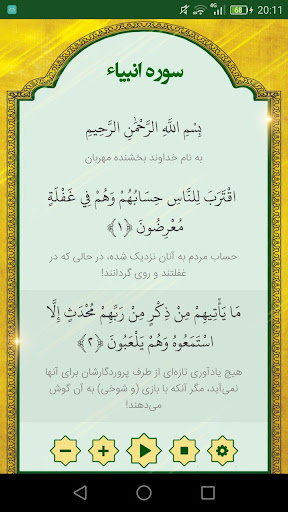 4G 60 20:11
سوره انبیاء
بِسْمِ اللَّهِ الرَّحْمَٰنِ الرَّحِيمِ
به نام خداوند بخشنده مهربان
اقْتَرَبَ لِلنَّاسِ حِسَابُهُمْ وَهُمْ فِي غَفْلَةٍ
مُعْرِضُونَ ﴿۱﴾
حساب مردم به آنان نزدیک شده، در حالی که در
غفلتند و روی گردانند!
مَا يَأْتِيهِمْ مِنْ ذِكْرٍ مِنْ رَبِّهِمْ مُحْدَثٍ إِلَّا
اسْتَمَعُوهُ وَهُمْ يَلْعَبُونَ ﴿۲﴾
هیچ یادآوری تازه‌ای از طرف پروردگارشان برای آنها
نمی‌آید، مگر آنکه با بازی (و شوخی) به آن گوش
می‌دهند!